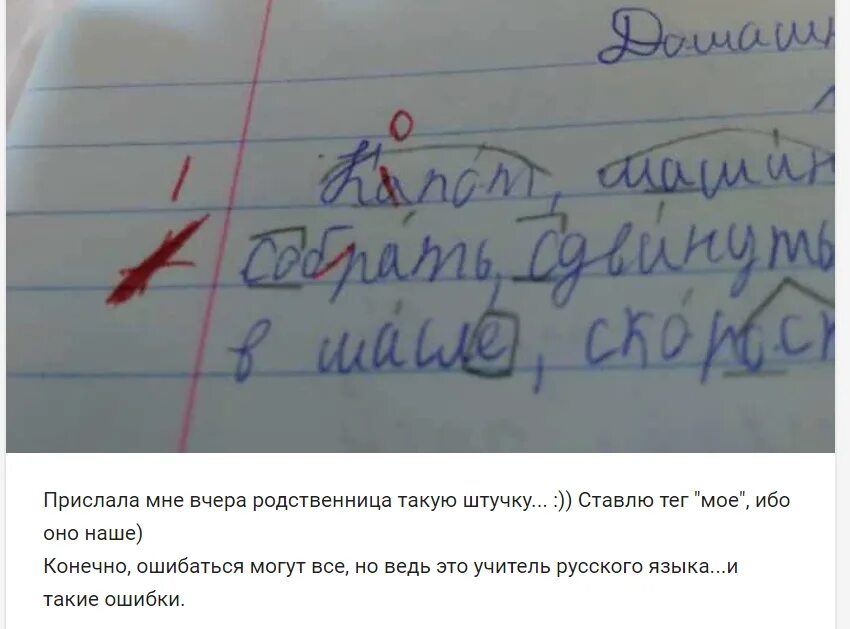 Домашн
о
Капот, машин
собрать, сдвинуть
в масле, скорос
Прислала мне вчера родственница такую штучку... :)) Ставлю тег "мое", ибо
оно наше)
Конечно, ошибаться могут все, но ведь это учитель русского языка...и
такие ошибки.